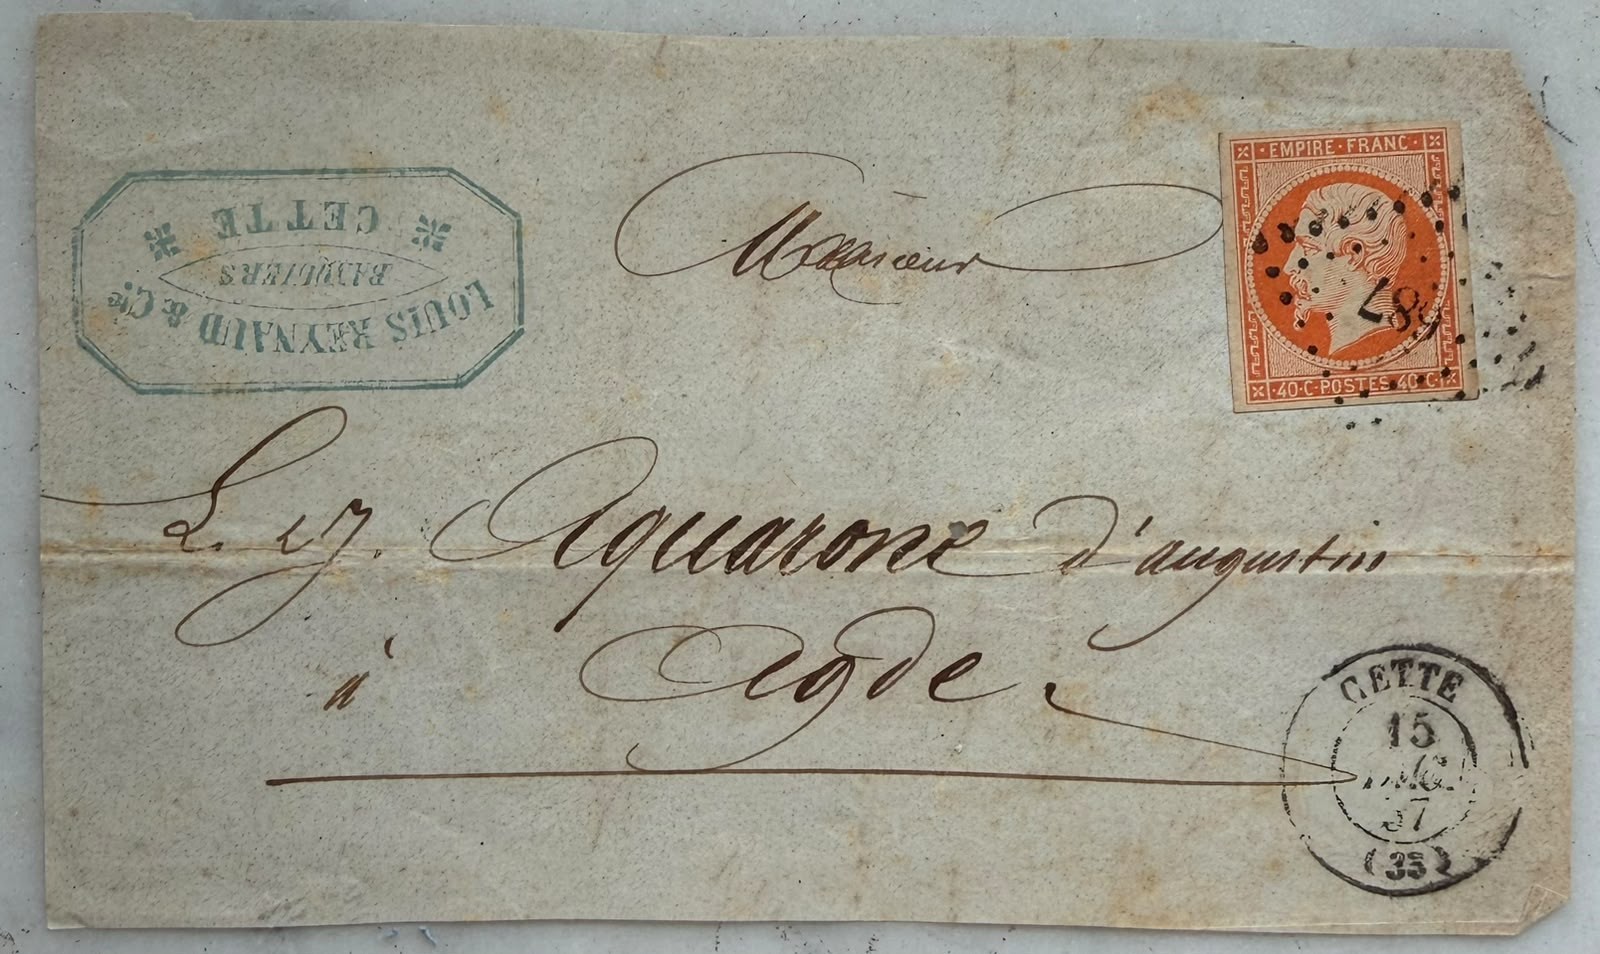 LOUIS REYNAUD & Cie
BANQUIERS
CETTE
Monsieur
EMPIRE·FRANC·
87
·40·C·POSTES·40·C·
L. et J. Aquarone d'augustin
à Agde
CETTE
15
57
(33)